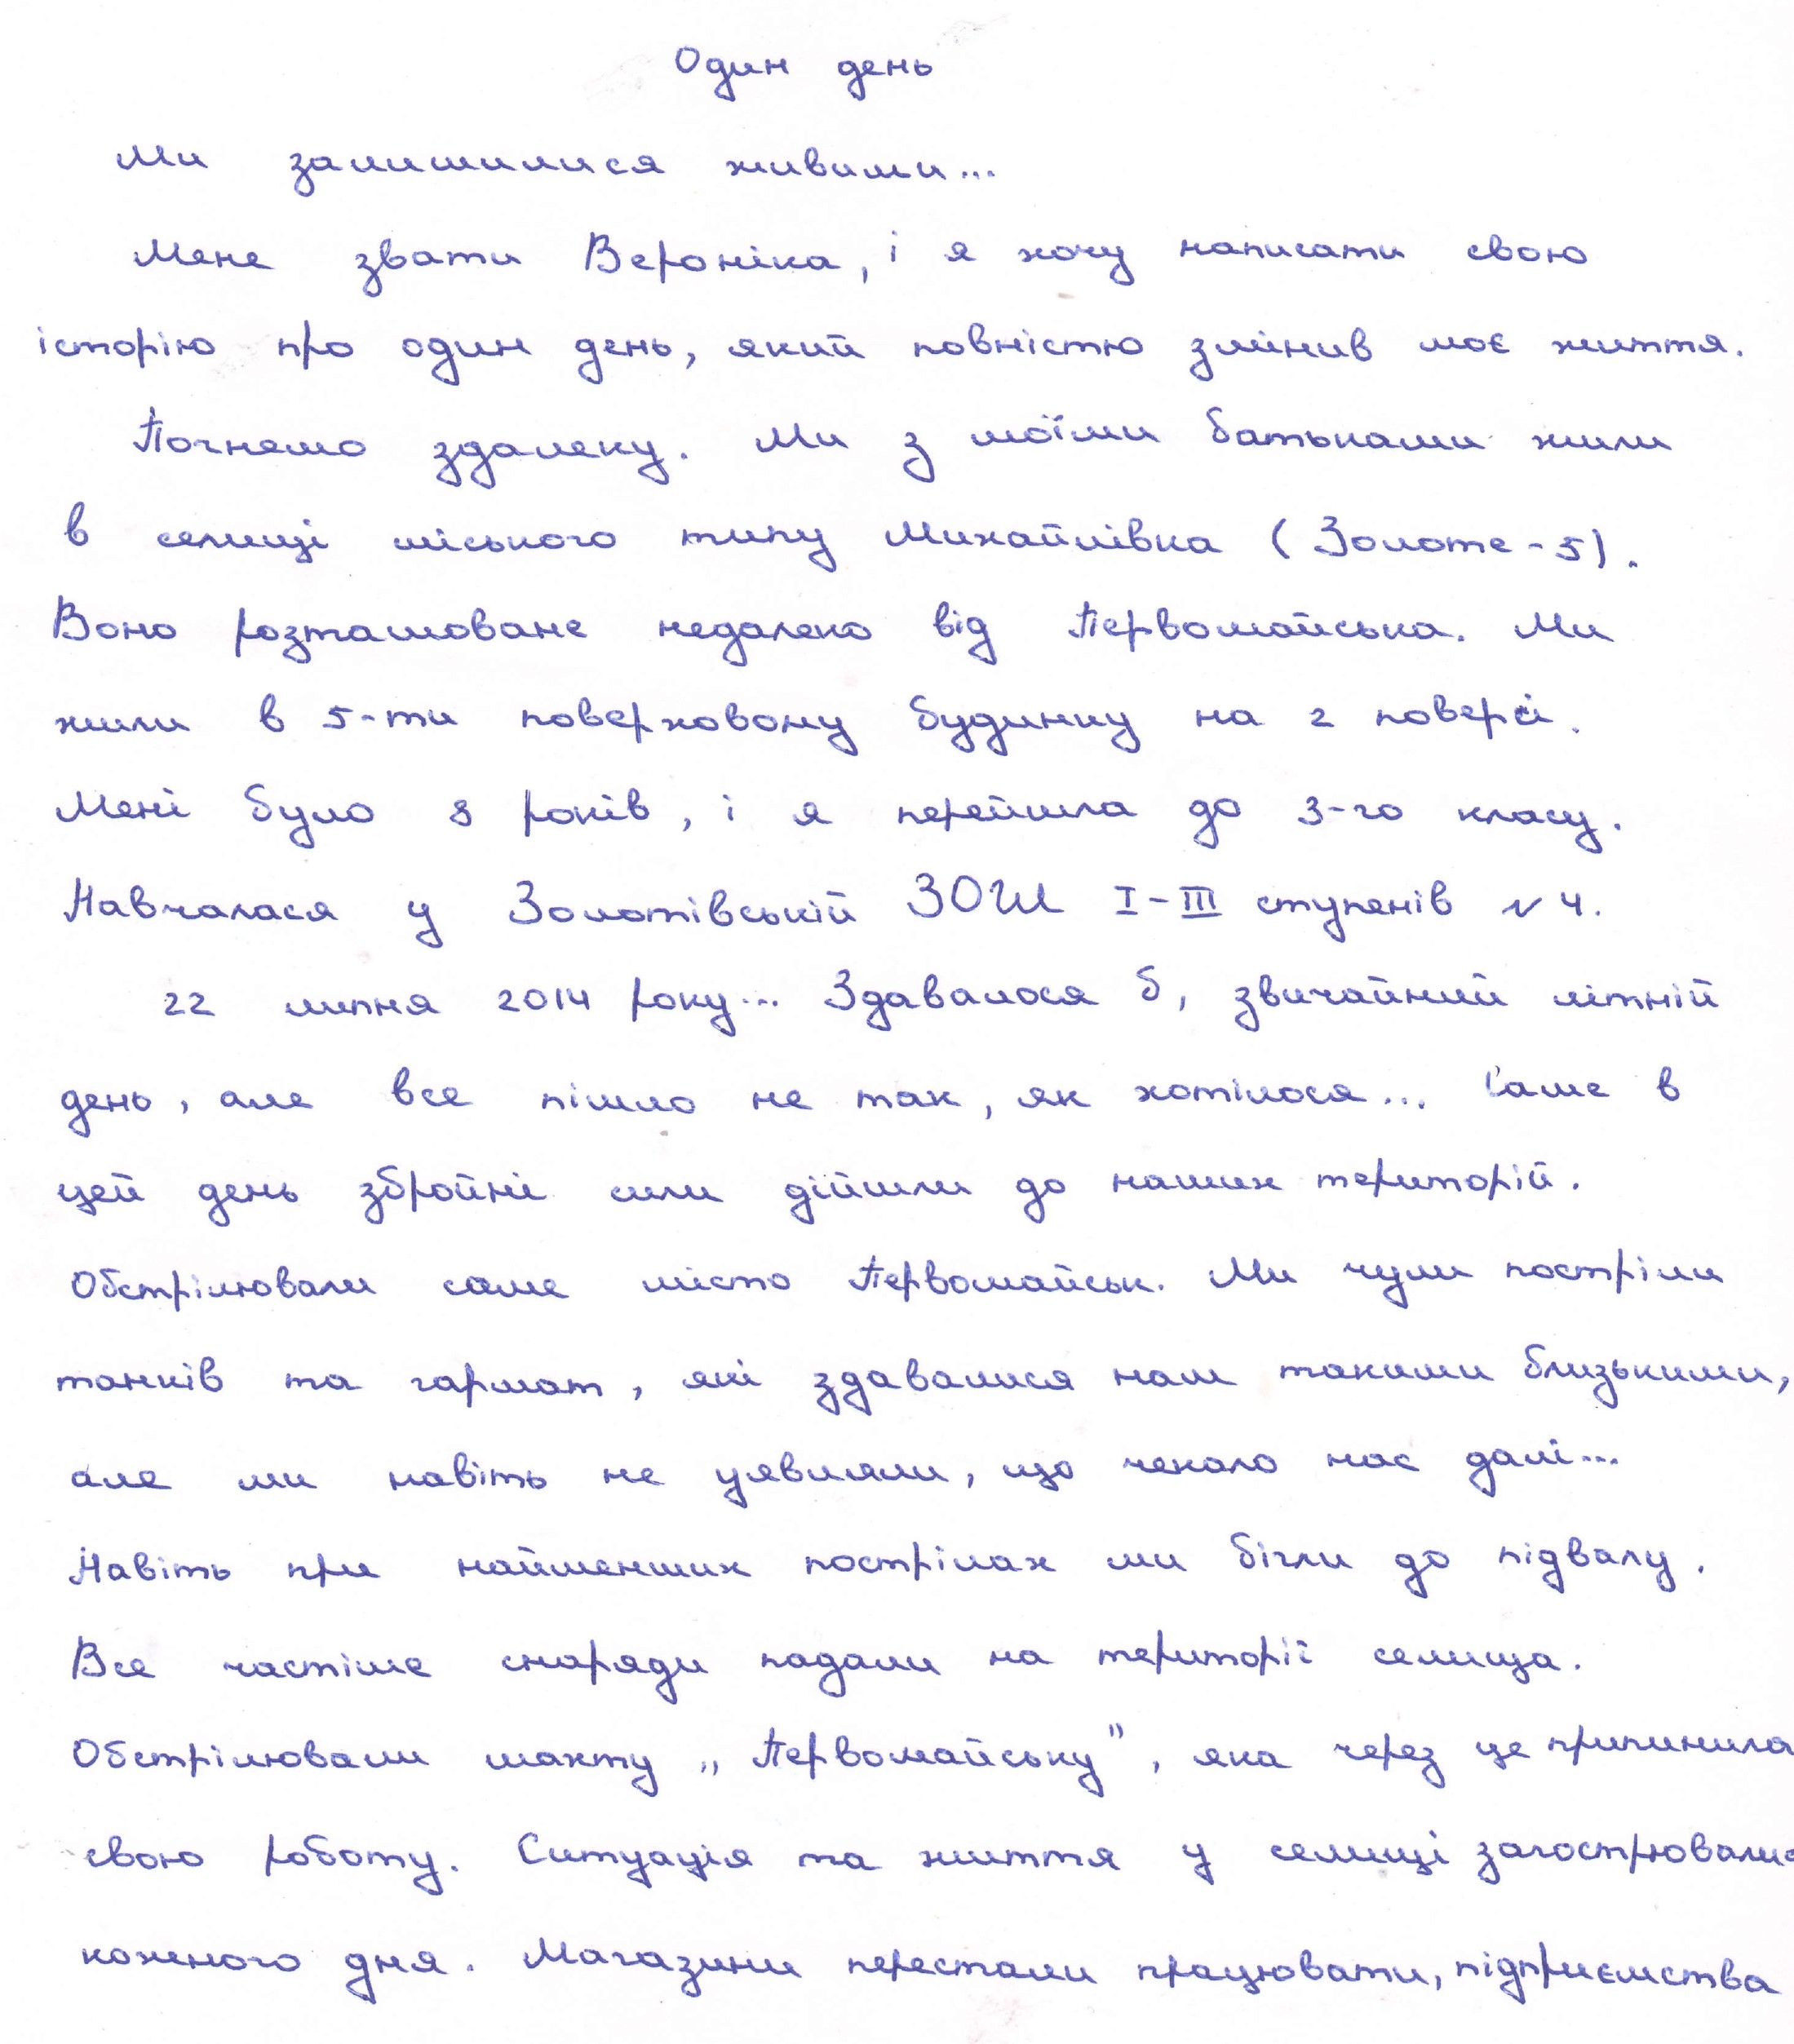 Один день
Ми залишилися живими...
Мене звати Вероніка, і я хочу написати свою
історію про один день, який повністю змінив моє життя.
Почнемо здалеку. Ми з моїми батьками жили
в селищі міського типу Михайлівка (Золоте-5).
Воно розташоване недалеко від Первомайська. Ми
жили в 5-ти поверховому будинку на 2 поверсі.
Мені було 8 років, і я перейшла до 3-го класу.
Навчалася у Золотівській ЗОШ I-III ступенів №4.
22 липня 2014 року... Здавалося б, звичайний літній
день, але все пішло не так, як хотілося... Саме в
цей день збройні сили дійшли до наших територій.
Обстрілювали саме місто Первомайськ. Ми чули постріли
танків та гармат, які здавалися нам такими близькими,
але ми навіть не уявляли, що чекало нас далі...
Навіть при найменших пострілах ми бігли до підвалу.
Все частіше снаряди падали на території селища.
Обстрілювали шахту „Первомайську”, яка через це припинила
свою роботу. Ситуація та життя у селищі загострювалис
кожного дня. Магазини перестали працювати, підприємства